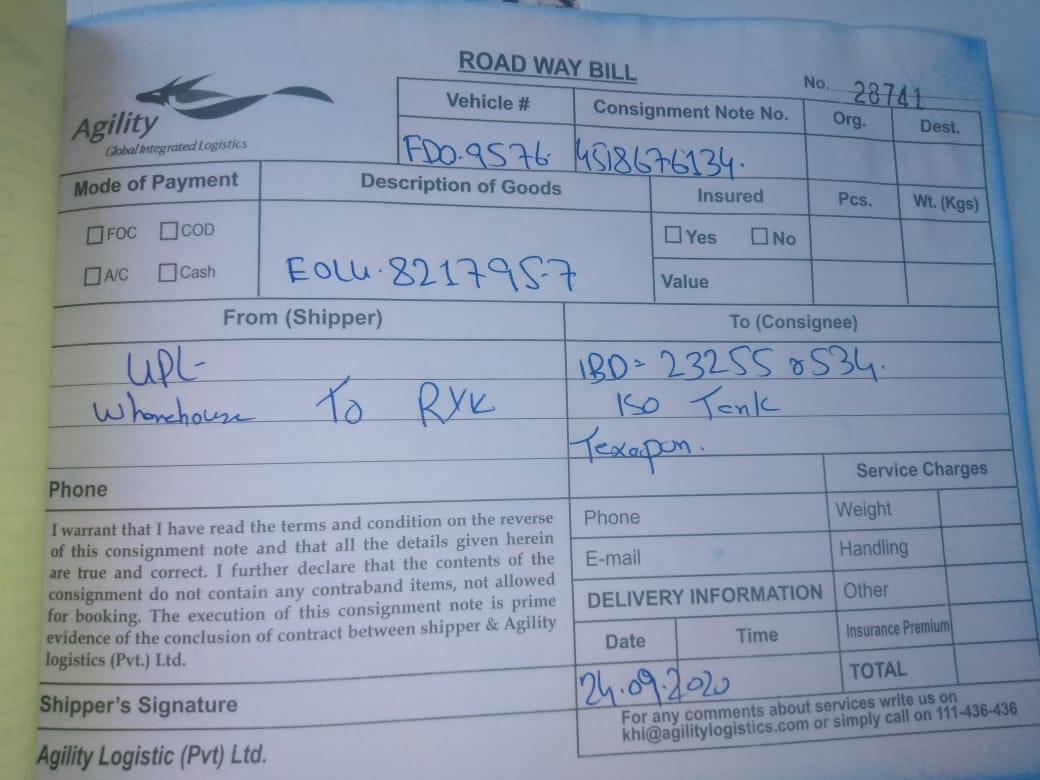 ROAD WAY BILL
No. 28741
Agility
Global Integrated Logistics
Vehicle #
Consignment Note No.
Org.
Dest.
FDO.9576
4518676134.
Mode of Payment
Description of Goods
Insured
Pcs.
Wt. (Kgs)
FOC
COD
Yes
No
A/C
Cash
EOLU.8217957
Value
From (Shipper)
To (Consignee)
UPL-
IBD= 23255 8534.
Wharehouse To RYK
ISO Tank
Texapon.
Phone
Service Charges
I warrant that I have read the terms and condition on the reverse
of this consignment note and that all the details given herein
are true and correct. I further declare that the contents of the
consignment do not contain any contraband items, not allowed
for booking. The execution of this consignment note is prime
evidence of the conclusion of contract between shipper & Agility
logistics (Pvt.) Ltd.
Phone
Weight
E-mail
Handling
DELIVERY INFORMATION
Other
Date
Time
Insurance Premium
24.09.2020
TOTAL
Shipper's Signature
For any comments about services write us on
khi@agilitylogistics.com or simply call on 111-436-436
Agility Logistic (Pvt) Ltd.